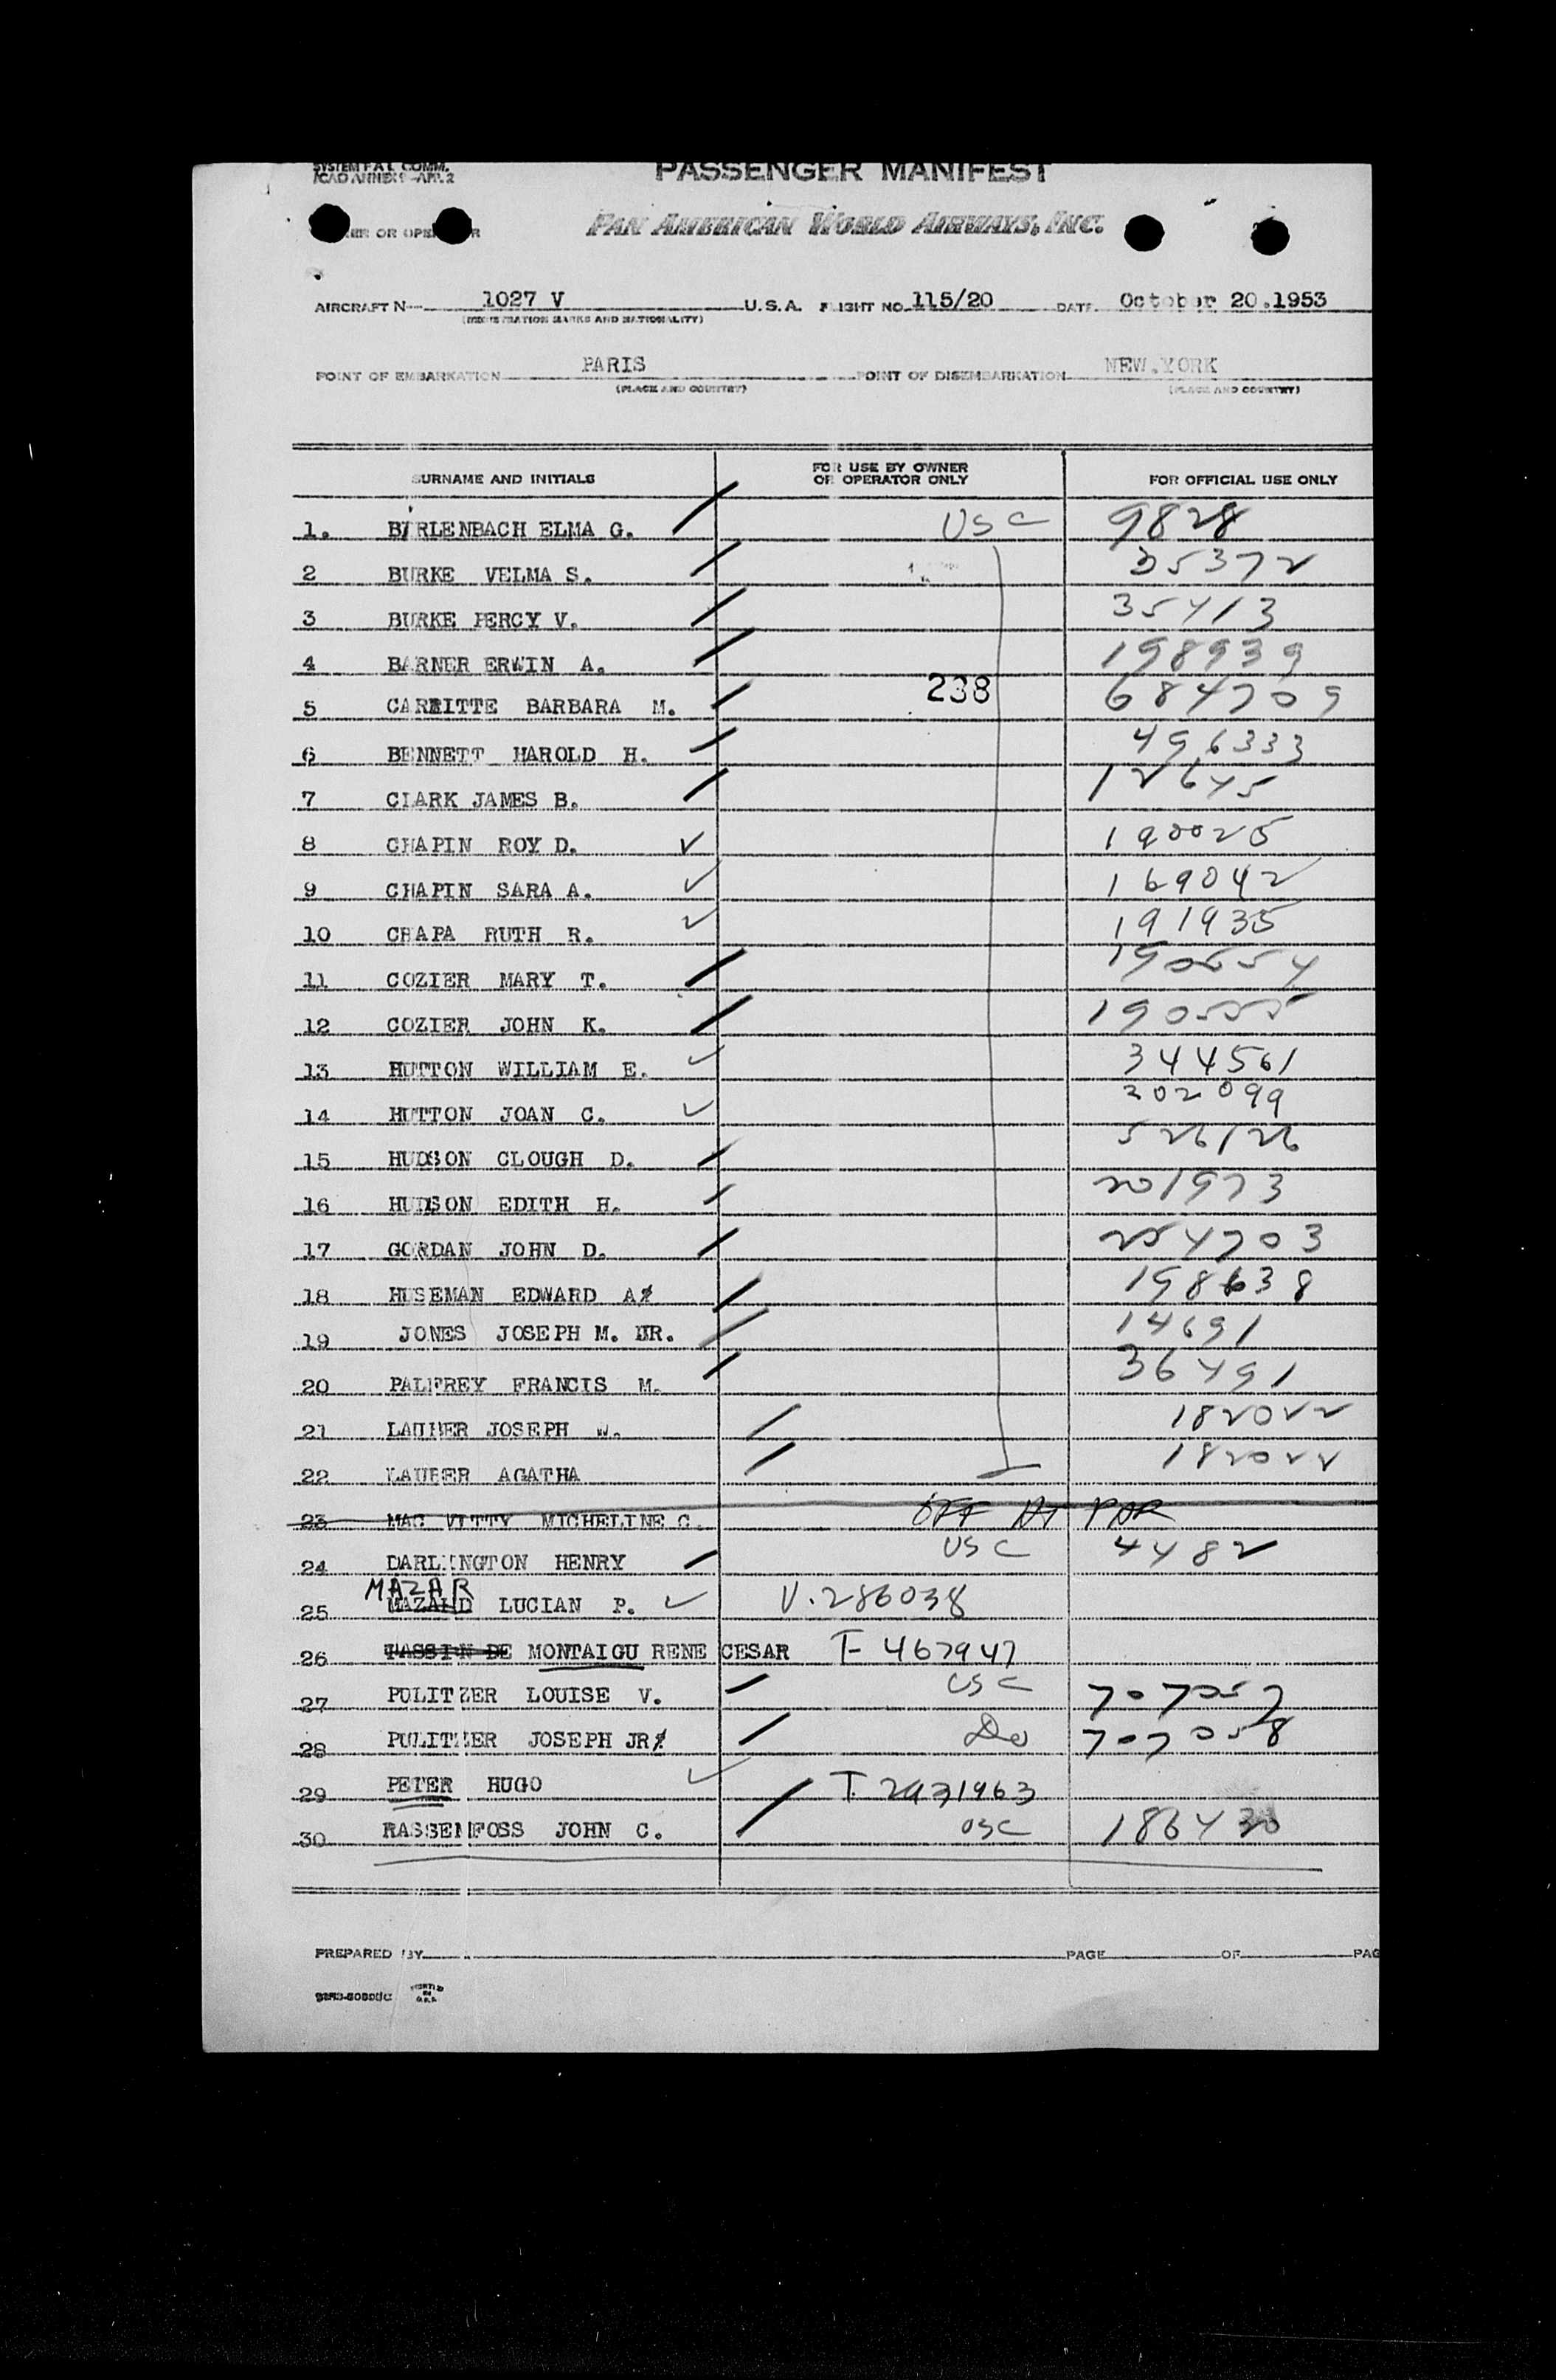 SYSTEM P.A.L. COMM.
ICAO ANNEX 9-APP. 2
PASSENGER MANIFEST
OR OPERATOR
PAN AMERICAN WORLD AIRWAYS, INC.
AIRCRAFT N— 1027 V U.S.A. FLIGHT NO. 115/20 DATE October 20.1953
(REGISTRATION MARKS AND NATIONALITY)
POINT OF EMBARKATION PARIS POINT OF DISEMBARKATION NEW.YORK
(PLACE AND COUNTRY) (PLACE AND COUNTRY)
SURNAME AND INITIALS FOR USE BY OWNER OR OPERATOR ONLY FOR OFFICIAL USE ONLY
1. BIRLENBACH ELMA G. USC 9828
2 BURKE VELMA S. 35372
3 BURKE PERCY V. 35413
4 BARNER ERWIN A. 198939
5 BARBARA M. 238 684709
6 BENNETT HAROLD H. 496333
7 CLARK JAMES B. 12645
8 CHAPIN ROY D. ✓ 190025
9 CHAPIN SARA A. ✓ 169042
10 CHAPA RUTH R. ✓ 191935
11 COZIER MARY T. 190554
12 COZIER JOHN K. 190555
13 HUTTON WILLIAM E. ✓ 344561
14 HUTTON JOAN C. ✓ 202099
15 HUDSON CLOUGH D. 526126
16 HUDSON EDITH H. 201973
17 GORDAN JOHN D. 254703
18 HUSEMAN EDWARD A. 198638
19 JONES JOSEPH M. DR. 14691
20 PALFREY FRANCIS M. 36491
21 LAUBER JOSEPH W. 182022
22 LAUBER AGATHA 182022
23 MAC VITTY MICHELINE C. OFF AT PAR
24 DARLINGTON HENRY USC 4482
MAZAR
25 MAZAUD LUCIAN P. ✓ V.286038
26 TASSIN DE MONTAIGU RENE CESAR T-467947
27 PULITZER LOUISE V. USC 707057
28 PULITZER JOSEPH JR. Do 707058
29 PETER HUGO ✓ T.2931963
30 RASSENFOSS JOHN C. USC 186430
PREPARED BY PAGE OF PAG
PRINTED IN U.S.A.